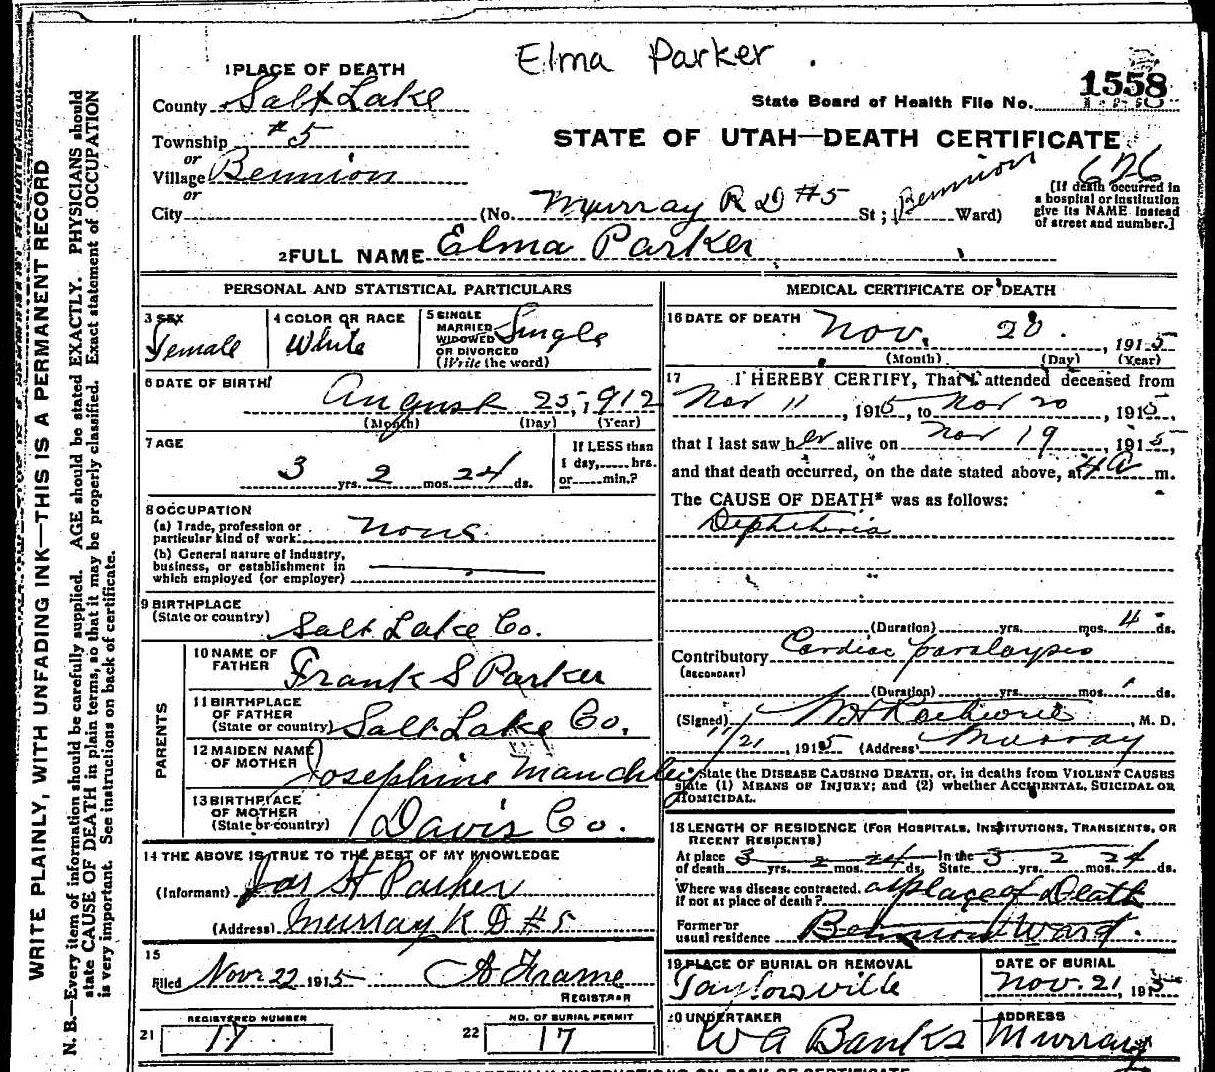 Elma Parker
1558
1 PLACE OF DEATH
County Salt Lake
State Board of Health File No.
Township #5
STATE OF UTAH—DEATH CERTIFICATE
or
Village Bennion
626
or
City (No. Murray R D #5 St; Bennion Ward)
[If death occurred in a hospital or institution give its NAME instead of street and number.]
2 FULL NAME Elma Parker
PERSONAL AND STATISTICAL PARTICULARS
3 SEX Female
4 COLOR OR RACE White
5 SINGLE MARRIED WIDOWED OR DIVORCED (Write the word) Single
6 DATE OF BIRTH August 25, 1912
(Month) (Day) (Year)
7 AGE
3 yrs. 2 mos. 24 ds.
If LESS than 1 day, hrs. or min.?
8 OCCUPATION
(a) Trade, profession or particular kind of work None
(b) General nature of industry, business, or establishment in which employed (or employer)
9 BIRTHPLACE
(State or country) Salt Lake Co.
PARENTS
10 NAME OF FATHER Frank S Parker
11 BIRTHPLACE OF FATHER (State or country) Salt Lake Co.
12 MAIDEN NAME OF MOTHER Josephine Manchley
13 BIRTHPLACE OF MOTHER (State or country) Davis Co.
14 THE ABOVE IS TRUE TO THE BEST OF MY KNOWLEDGE
(Informant) Jos H Parker
(Address) Murray R D #5
15
Filed Nov. 22 1915 A Frame
REGISTRAR
21 REGISTERED NUMBER 17
22 NO. OF BURIAL PERMIT 17
MEDICAL CERTIFICATE OF DEATH
16 DATE OF DEATH Nov. 20, 1915
(Month) (Day) (Year)
17 I HEREBY CERTIFY, That I attended deceased from
Nov 11, 1915, to Nov 20, 1915,
that I last saw her alive on Nov 19 1915
and that death occurred, on the date stated above, at 4 a m.
The CAUSE OF DEATH* was as follows:
Diphtheria
(Duration) yrs. mos. 4 ds.
Contributory Cardiac paralysis
(SECONDARY)
(Duration) yrs. mos. ds.
(Signed) , M. D.
11/21, 1915 (Address) Murray
*State the DISEASE CAUSING DEATH, or, in deaths from VIOLENT CAUSES
state (1) MEANS OF INJURY; and (2) whether ACCIDENTAL, SUICIDAL OR
HOMICIDAL.
18 LENGTH OF RESIDENCE (FOR HOSPITALS, INSTITUTIONS, TRANSIENTS, OR
RECENT RESIDENTS)
At place of death 3 yrs. 2 mos. 24 ds. In the State 3 yrs. 2 mos. 24 ds.
Where was disease contracted, if not at place of death? at place of Death
Former or usual residence Bennion Ward.
19 PLACE OF BURIAL OR REMOVAL Taylorsville
DATE OF BURIAL Nov. 21, 1915
20 UNDERTAKER W A Banks
ADDRESS Murray
WRITE PLAINLY, WITH UNFADING INK—THIS IS A PERMANENT RECORD
N. B.—Every item of information should be carefully supplied. AGE should be stated EXACTLY. PHYSICIANS should
state CAUSE OF DEATH in plain terms, so that it may be properly classified. Exact statement of OCCUPATION
is very important. See instructions on back of certificate.